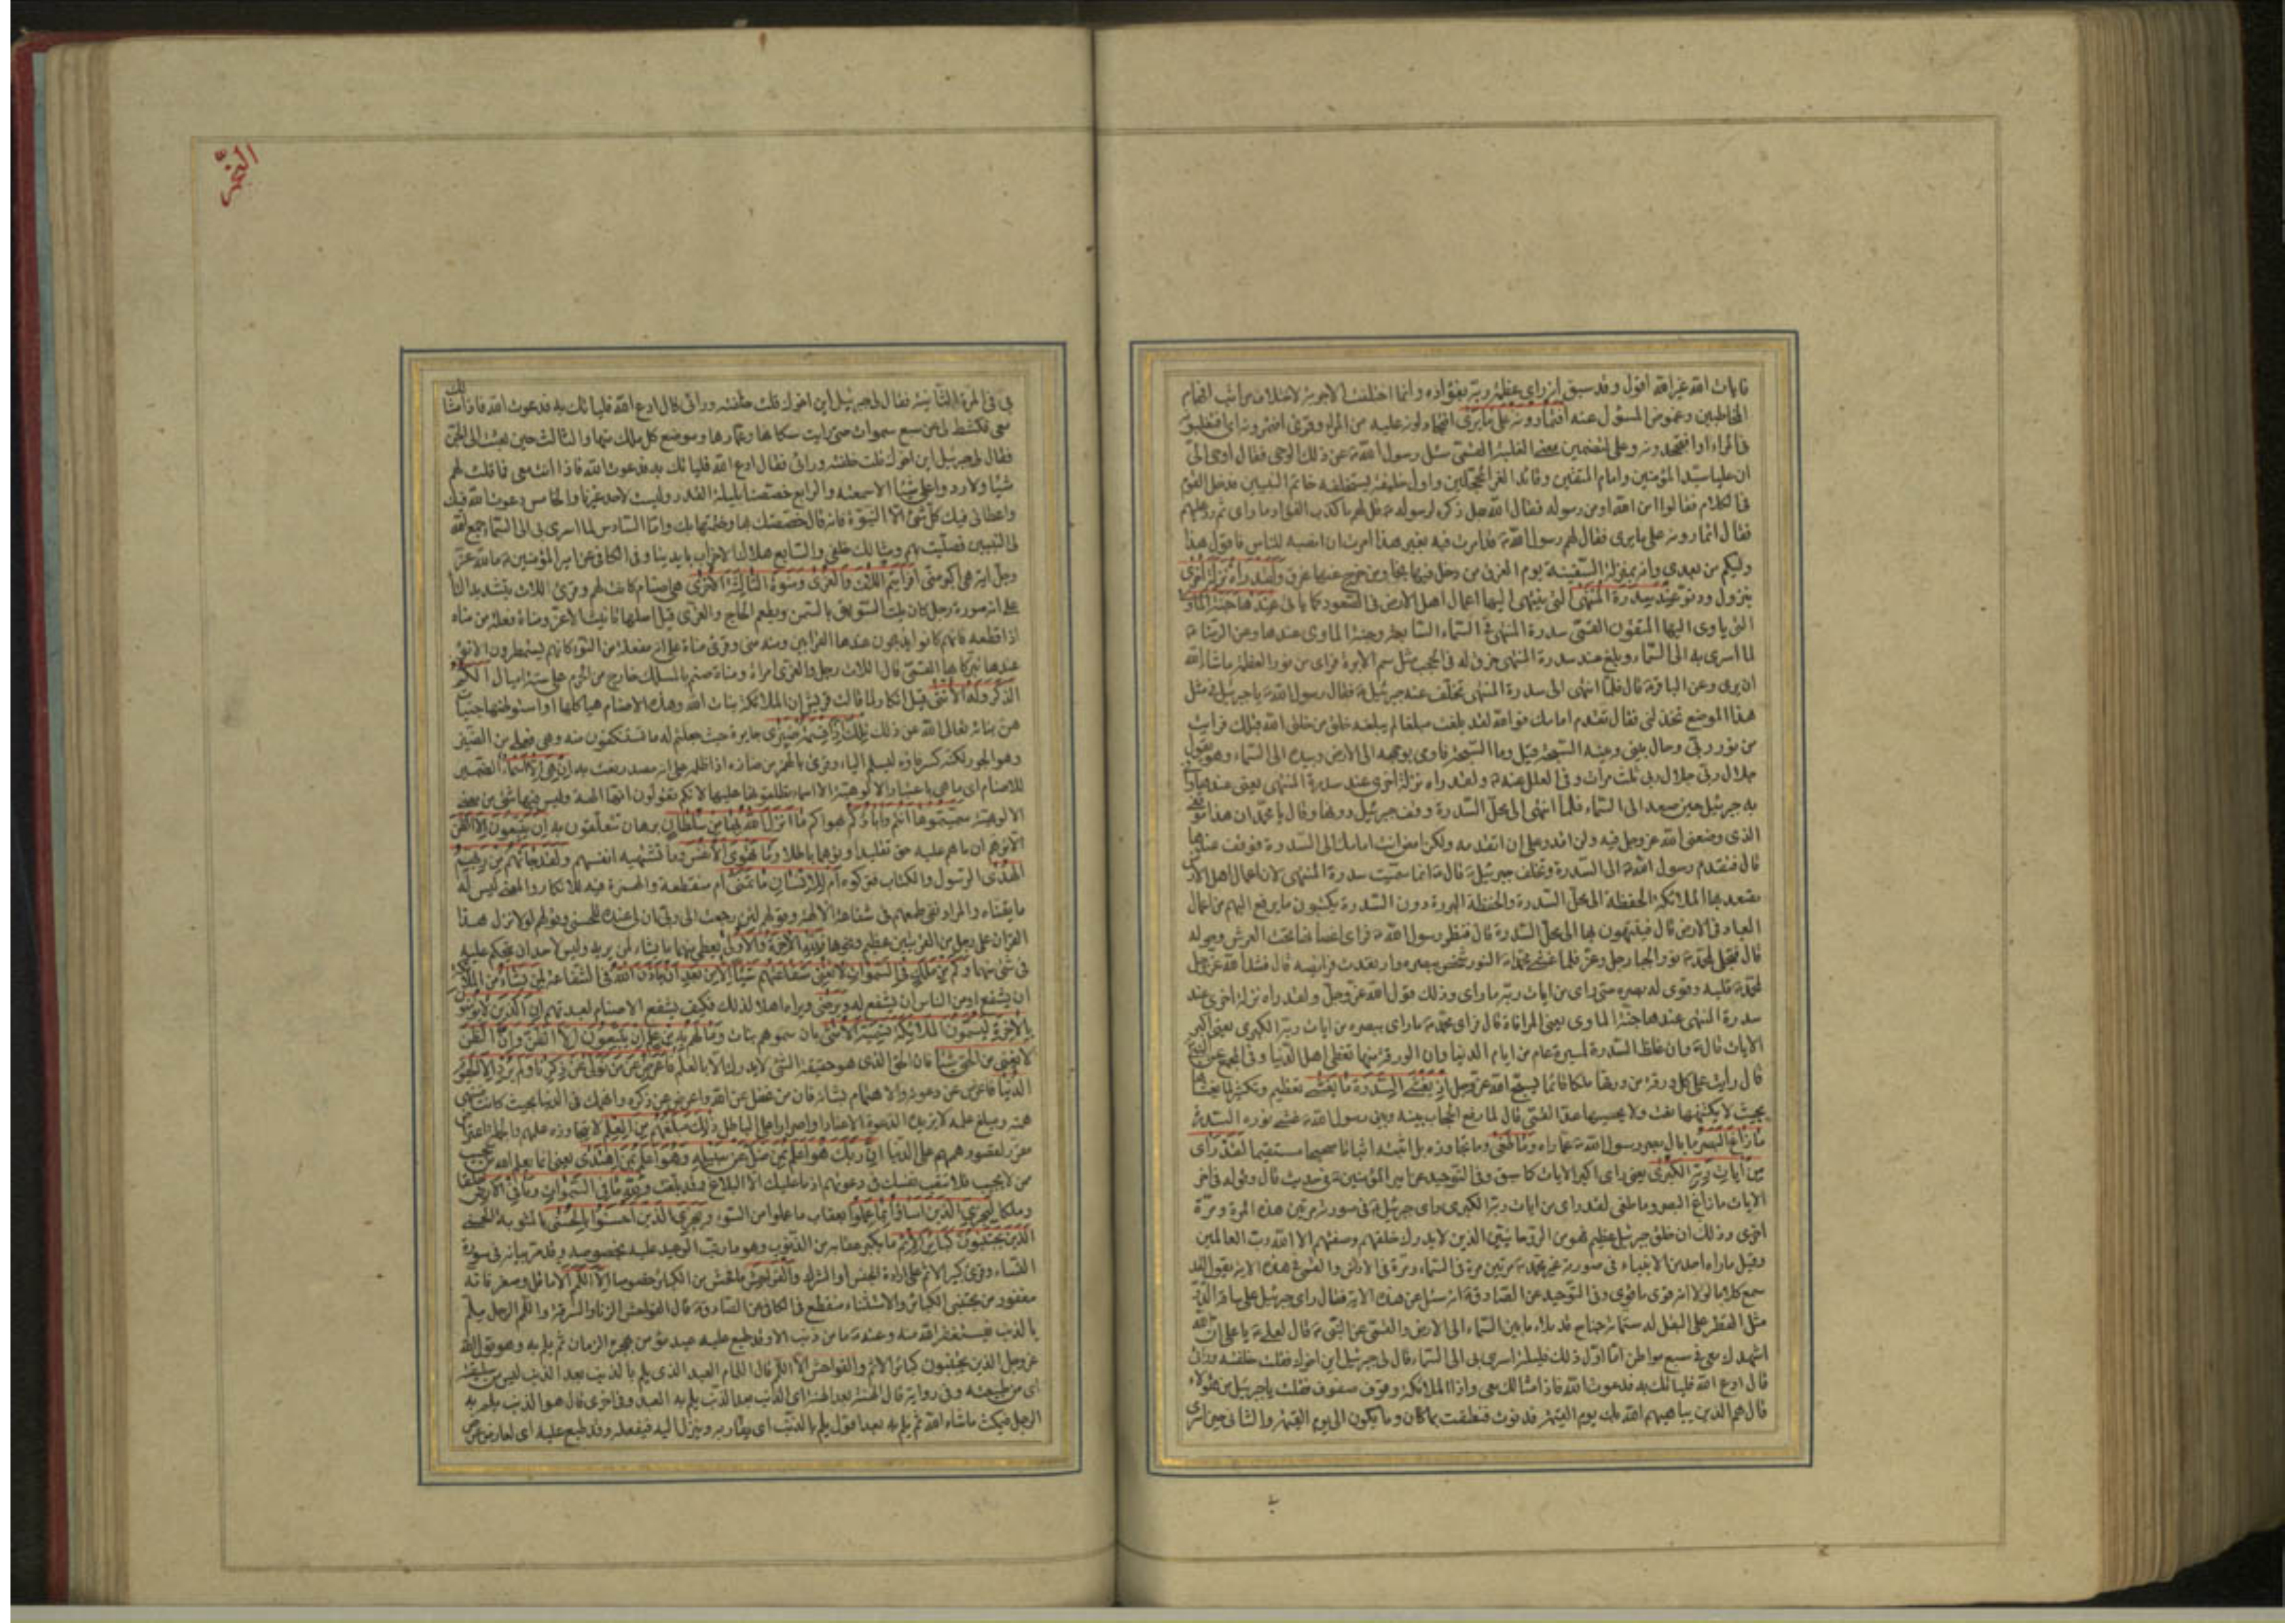 فايات الله غير الله اقول وقد سبق انه راى عظمة ربه بفؤاده وانما اختلفت الاجوبة لاختلاف مراتب افهام
المخاطبين وغموض المسؤل عنه افتمارونه على ما يرى افتجادلونه عليه من المراء وقرئ افتمرونه اى افتغلبونه
فى المراء او افتجحدونه وعلى لتضمين معنى الغلبة القمى سئل رسول الله ص عن ذلك الوحى فقال اوحى الىّ
ان عليا سيد المؤمنين وامام المتقين وقائد الغر المحجلين واول خليفة يستخلفه خاتم النبيين فدخل القوم
فى الكلام فقالوا امن الله او من رسوله فقال الله جل ذكره لرسوله ص قل لهم ما كذب الفؤاد ما راى ثم رد عليهم
فقال افتمارونه على ما يرى فقال لهم رسول الله ص قد امرت فيه بغير هذا امرت ان انصبه للناس فاقول هذا
وليكم من بعدى وانه بمنزلة السفينة يوم الغرق من دخل فيها نجا ومن خرج عنها غرق ولقد راه نزلة اخرى
بنزول ودنو عند سدرة المنتهى التى ينتهى اليها اعمال اهل الارض فى الصعود كما ياتى عندها جنة الماوى
التى ياوى اليها المتقون القمى سدرة المنتهى فى السماء السابعة وجنة الماوى عندها وعن الرضا ع
لما اسرى به الى السماء وبلغ عند سدرة المنتهى خرق له فى الحجب مثل سم الابرة فراى من نور العظمة ما شاء الله
ان يرى وعن الباقر ع قال فلما انتهى الى سدرة المنتهى تخلف عنه جبرئيل ع فقال رسول الله ص يا جبرئيل فى مثل
هذا الموضع تخذلنى فقال تقدم امامك فوالله لقد بلغت مبلغا لم يبلغه خلق من خلق الله قبلك فرايت
من نور ربى وحال بينى وبينه السبحة قيل وما السبحة فاوى بوجهه الى الارض وبيده الى السماء وهو يقول
جلال ربى جلال ربى ثلث مرات وفى العلل عنه ع ولقد راه نزلة اخرى عند سدرة المنتهى يعنى عندها وافا
به جبرئيل حين صعد الى السماء فلما انتهى الى محل السدرة وقف جبرئيل دونها وقال يا محمد ان هذا موقفى
الذى وضعنى الله عز وجل فيه ولن اقدر على ان اتقدمه ولكن امض انت امامك الى السدرة فوقف عندها
قال فتقدم رسول الله ص الى السدرة وتخلف جبرئيل ع قال ع انما سميت سدرة المنتهى لان اعمال اهل الارض
تصعد بها الملائكة الحفظة الى محل السدرة والحفظة البررة دون السدرة يكتبون ما يرفع اليهم من اعمال
العباد فى الارض قال فينتهون بها الى محل السدرة قال فنظر رسول الله ص فراى اغصانها تحت العرش وحوله
قال فتجلى لمحمد ص نور الجبار جل وعز فلما غشى محمدا ص النور شخص ببصره وارتعدت فرايصه قال فشد الله عز وجل
لمحمد ص قلبه وقوى له بصره حتى راى من ايات ربه ما راى وذلك قول الله عز وجل ولقد راه نزلة اخرى عند
سدرة المنتهى عندها جنة الماوى يعنى الموافاة قال فراى محمد ص ما راى ببصره من ايات ربه الكبرى يعنى اكبر
الايات قال ع وان غلظ السدرة لمسيرة مائة عام من ايام الدنيا وان الورقة منها تغطى اهل الدنيا وفى المجمع عن النبى ص
قال رايت على كل ورقة من ورقها ملكا قائما يسبح الله عز وجل اذ يغشى السدرة ما يغشى تعظيم وتكثير لما يغشاها
بحيث لا يكتنهها نعت ولا يحصيها عد القمى قال لما رفع الحجاب بينه وبين رسول الله ص غشى نوره السدرة
ما زاغ البصر ما مال بصر رسول الله ص عما راه وما طغى وما تجاوزه بل اثبته اثباتا صحيحا مستقيما لقد راى
من ايات ربه الكبرى يعنى راى اكبر الايات كما سبق وفى التوحيد عن امير المؤمنين ع فى حديث قال وقوله فى اخر
الايات ما زاغ البصر وما طغى لقد راى من ايات ربه الكبرى راى جبرئيل ع فى صورته مرتين هذه المرة ومرة
اخرى وذلك ان خلق جبرئيل عظيم فهو من الروحانيين الذين لا يدرك خلقهم وصفتهم الا الله رب العالمين
وقيل ما راه احد من الانبياء فى صورته غير محمد ص مرتين مرة فى السماء ومرة فى الارض والقمى فى هذه الاية يقول لقد
سمع كلاما لولا انه قوى ما قوى وفى التوحيد عن الصادق ع انه سئل عن هذه الاية فقال راى جبرئيل على ساقه الدر
مثل القطر على البقل له ستمائة جناح قد ملاء ما بين السماء الى الارض والقمى عن النبى ص قال لعلى ع يا على ان الله
اشهدك معى فى سبع مواطن اما اول ذلك فليلة اسرى بى الى السماء قال لى جبرئيل اين اخوك فقلت خلفته ورائى
قال ادع الله فلياتك به فدعوت الله فاذا مثالك معى واذا الملائكة وقوف صفوف فقلت يا جبرئيل من هؤلاء
قال هم الذين يباهيهم الله بك يوم القيمة فدنوت فنطقت بما كان وما يكون الى يوم القيمة والثانى حين اسرى
بى
النجم
بى فى المرة الثانية فقال لى جبرئيل اين اخوك قلت خلفته ورائى قال ادع الله فلياتك به فدعوت الله فاذا مثالك
معى فكشط لى عن سبع سموات حتى رايت سكانها وعمارها وموضع كل ملك منها والثالث حين بعثت الى الجن
فقال لى جبرئيل اين اخوك قلت خلفته ورائى فقال ادع الله فلياتك به فدعوت الله فاذا انت معى فما قلت لهم
شيا ولا ردوا على شيا الا سمعته والرابع خصصنا بليلة القدر وليست لاحد غيرنا والخامس دعوت الله فيك
واعطانى فيك كل شئ الا النبوة فانه قال خصصتك بها وختمتها بك واما السادس لما اسرى بى الى السماء جمع الله
لى النبيين فصليت بهم ومثالك خلفى والسابع هلاك الاحزاب بايدينا وفى الكافى عن امير المؤمنين ع ما لله عز
وجل اية هى اكبر منى افرايتم اللات والعزى ومنوة الثالثة الاخرى هى اصنام كانت لهم وقرئ اللات بتشديد التا
على انه صورة رجل كان يلت السويق بالسمن ويطعم الحاج والعزى قيل اصلها تانيث الاعز ومناة فعلة من مناه
اذا قطعه فانهم كانوا يذبحون عندها القرابين ومنه منى وقرئ مناة على انه مفعلة من النوء كانهم يستمطرون الانواء
عندها تبركا بها القمى قال اللات رجل والعزى امراة ومناة صنم بالمسلك خارج من الحرم على ستة اميال الكم
الذكر وله الانثى قيل انكار لما قالت قريش ان الملائكة بنات الله وهذه الاصنام هياكلها او استوطنها جنيات
هن بناته تعالى الله عن ذلك تلك اذا قسمة ضيزى جايرة حيث جعلتم له ما تستنكفون منه وهى فعلى من الضيز
وهو الجور لكنه كسر فاؤه ليسلم الياء وقرئ بالهمز من ضازه اذا ظلمه على انه مصدر نعت به ان هى الا اسماء الضمير
للاصنام اى ما هى باعتبار الالوهية الا اسماء تطلقونها عليها لانكم تقولون انها الهة وليس فيها شئ من معنى
الالوهية سميتموها انتم واباؤكم بهواكم ما انزل الله بها من سلطان برهان تتعلقون به ان يتبعون الا الظن
الا توهم ان ما هم عليه حق تقليدا وتوهما باطلا وما تهوى الانفس وما تشتهيه انفسهم ولقد جائهم من ربهم
الهدى الرسول والكتاب فتركوه ام للانسان ما تمنى ام منقطعة والهمزة فيه للانكار والمعنى ليس له
ما يتمناه والمراد نفى طمعهم فى شفاعة الالهة وقولهم لئن رجعت الى ربى ان لى عنده للحسنى وقولهم لولا نزل هذا
القران على رجل من القريتين عظيم ونحوها فلله الاخرة والاولى يعطى منهما ما يشاء لمن يريد وليس لاحد ان يتحكم عليه
فى شئ منهما وكم من ملك فى السموات لا تغنى شفاعتهم شيئا الا من بعد ان ياذن الله فى الشفاعة لمن يشاء من الملائكة
ان يشفع او من الناس ان يشفع له ويرضى ويراه اهلا لذلك فكيف يشفع الاصنام لعبدتهم ان الذين لا يؤمنون
بالاخرة ليسمون الملائكة تسمية الانثى بان سموهم بنات وما لهم به من علم ان يتبعون الا الظن وان الظن
لا يغنى من الحق شيئا فان الحق الذى هو حقيقة الشئ لا يدرك الا بالعلم فاعرض عن من تولى عن ذكرنا ولم يرد الا الحيوة
الدنيا فاعرض عن دعوته والاهتمام بشانه فان من غفل عن الله واعرض عن ذكره وانهمك فى الدنيا بحيث كانت منتهى
همته ومبلغ علمه لا تزيده الدعوة الا عنادا واصرارا على الباطل ذلك مبلغهم من العلم لا يتجاوزه علمهم والجملة اعتراض
مقرر لقصور هممهم على الدنيا ان ربك هو اعلم بمن ضل عن سبيله وهو اعلم بمن اهتدى يعنى انما يعلم الله من يجيب
من لا يجيب فلا تتعب نفسك فى دعوتهم اذ ما عليك الا البلاغ وقد بلغت ولله ما فى السموات وما فى الارض خلقا
وملكا ليجزى الذين اساؤا بما عملوا بعقاب ما عملوا من السوء ويجزى الذين احسنوا بالحسنى بالمثوبة الحسنى
الذين يجتنبون كبائر الاثم ما يكبر عقابه من الذنوب وهو ما رتب الوعيد عليه بخصوصه وقد مر بيانه فى سورة
النساء وقرئ كبير الاثم على ارادة الجنس او الشرك والفواحش ما فحش من الكبائر خصوصا الا اللمم الا ما قل وصغر فانه
مغفور من مجتنبى الكبائر والاستثناء منقطع فى الكافى عن الصادق ع قال الفواحش الزنا والسرقة واللمم الرجل يلم
بالذنب فيستغفر الله منه وعنه ع ما من ذنب الا وقد طبع عليه عبد مؤمن يهجره الزمان ثم يلم به وهو قول الله
عز وجل الذين يجتنبون كبائر الاثم والفواحش الا اللمم قال اللمام العبد الذى يلم بالذنب بعد الذنب ليس من سليقته
اى من طبيعته وفى رواية قال الهنة بعد الهنة اى الذنب بعد الذنب يلم به العبد وفى اخرى قال هو الذنب يلم به
الرجل فيمكث ما شاء الله ثم يلم به بعد اقول يلم بالذنب اى يقاربه وينزل اليه فيفعله وقد طبع عليه اى لعارض عرض